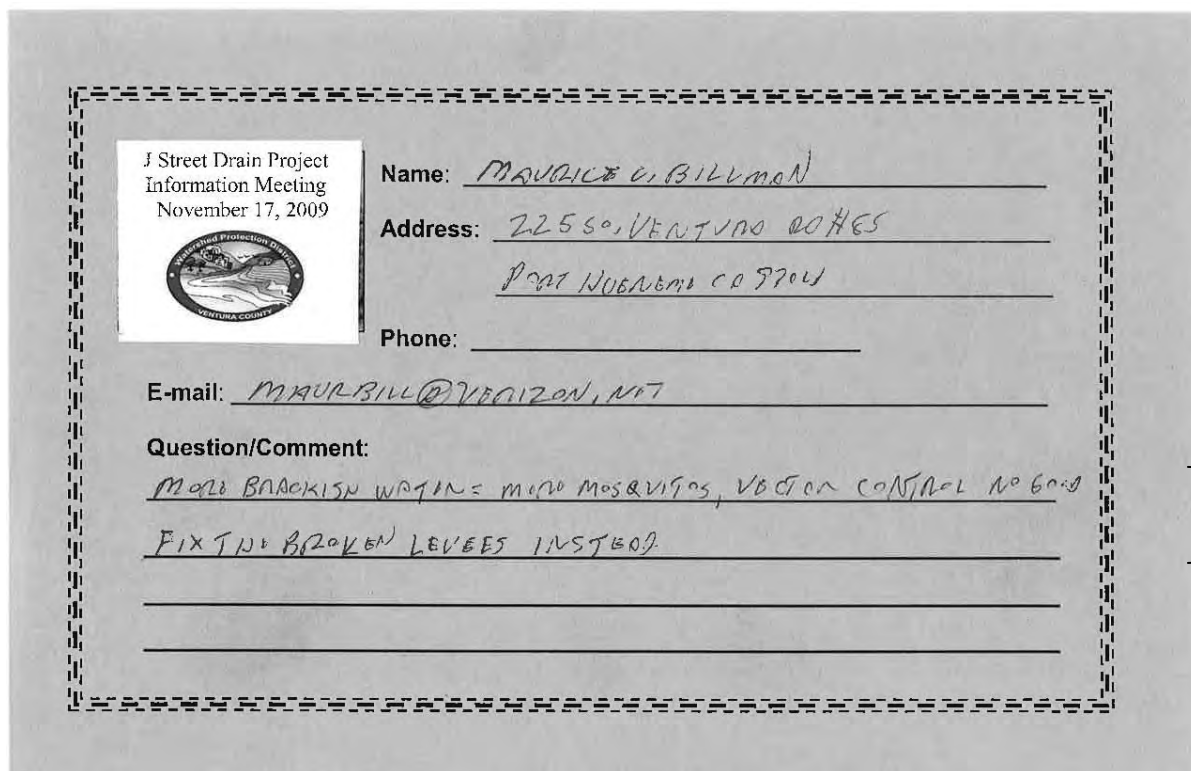 J Street Drain Project
Information Meeting
November 17, 2009
Watershed Protection District
VENTURA COUNTY
Name: MAURICE V. BILLMAN
Address: 225 SO, VENTURA
PORT HUENEME CA
Phone:
E-mail: MAURBILL@VERIZON.NET
Question/Comment:
MORE BRACKISH WATER = MORE MOSQUITOS, VECTOR CONTROL NO GOOD
FIX THE BROKEN LEVEES INSTEAD.